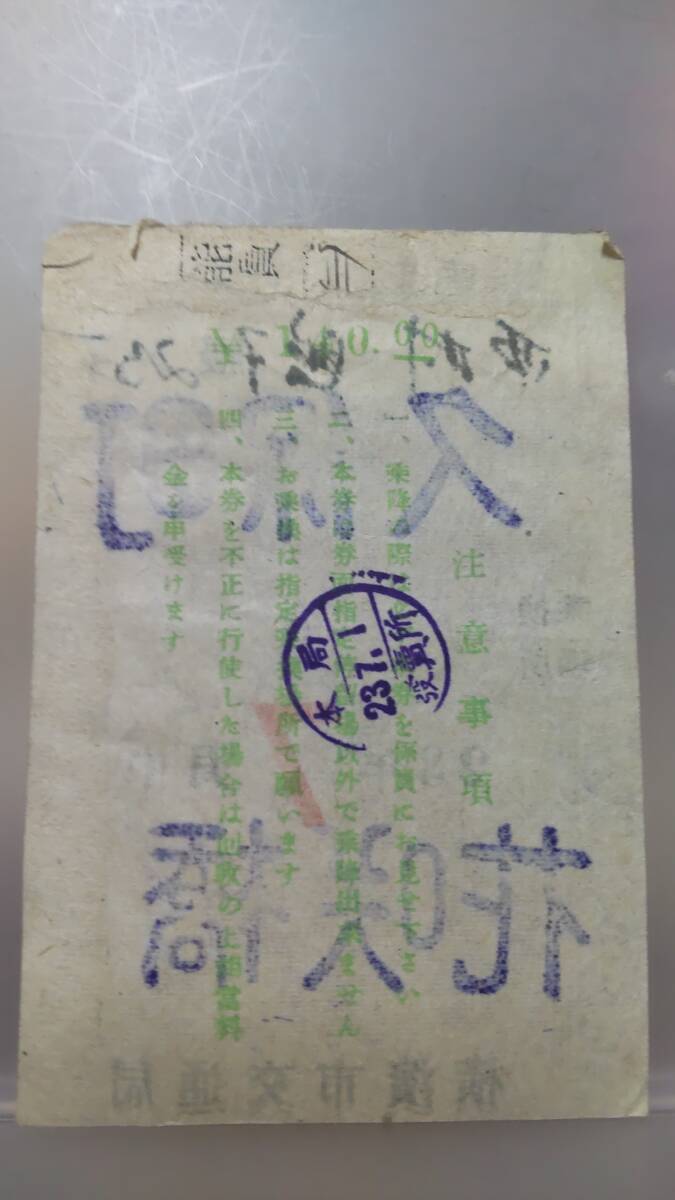 ¥ 140.00
注意事項
一、乗降の際は本券を係員にお見せ下さい
二、本券は券面指定の乗場以外で乗降出来ません
三、お乗換は指定の乗換場所で願います
四、本券を不正に行使した場合は回收の上相當料
金を申受けます
本局
23.7.1
發賣所
久保町
花咲橋
横濱市交通局